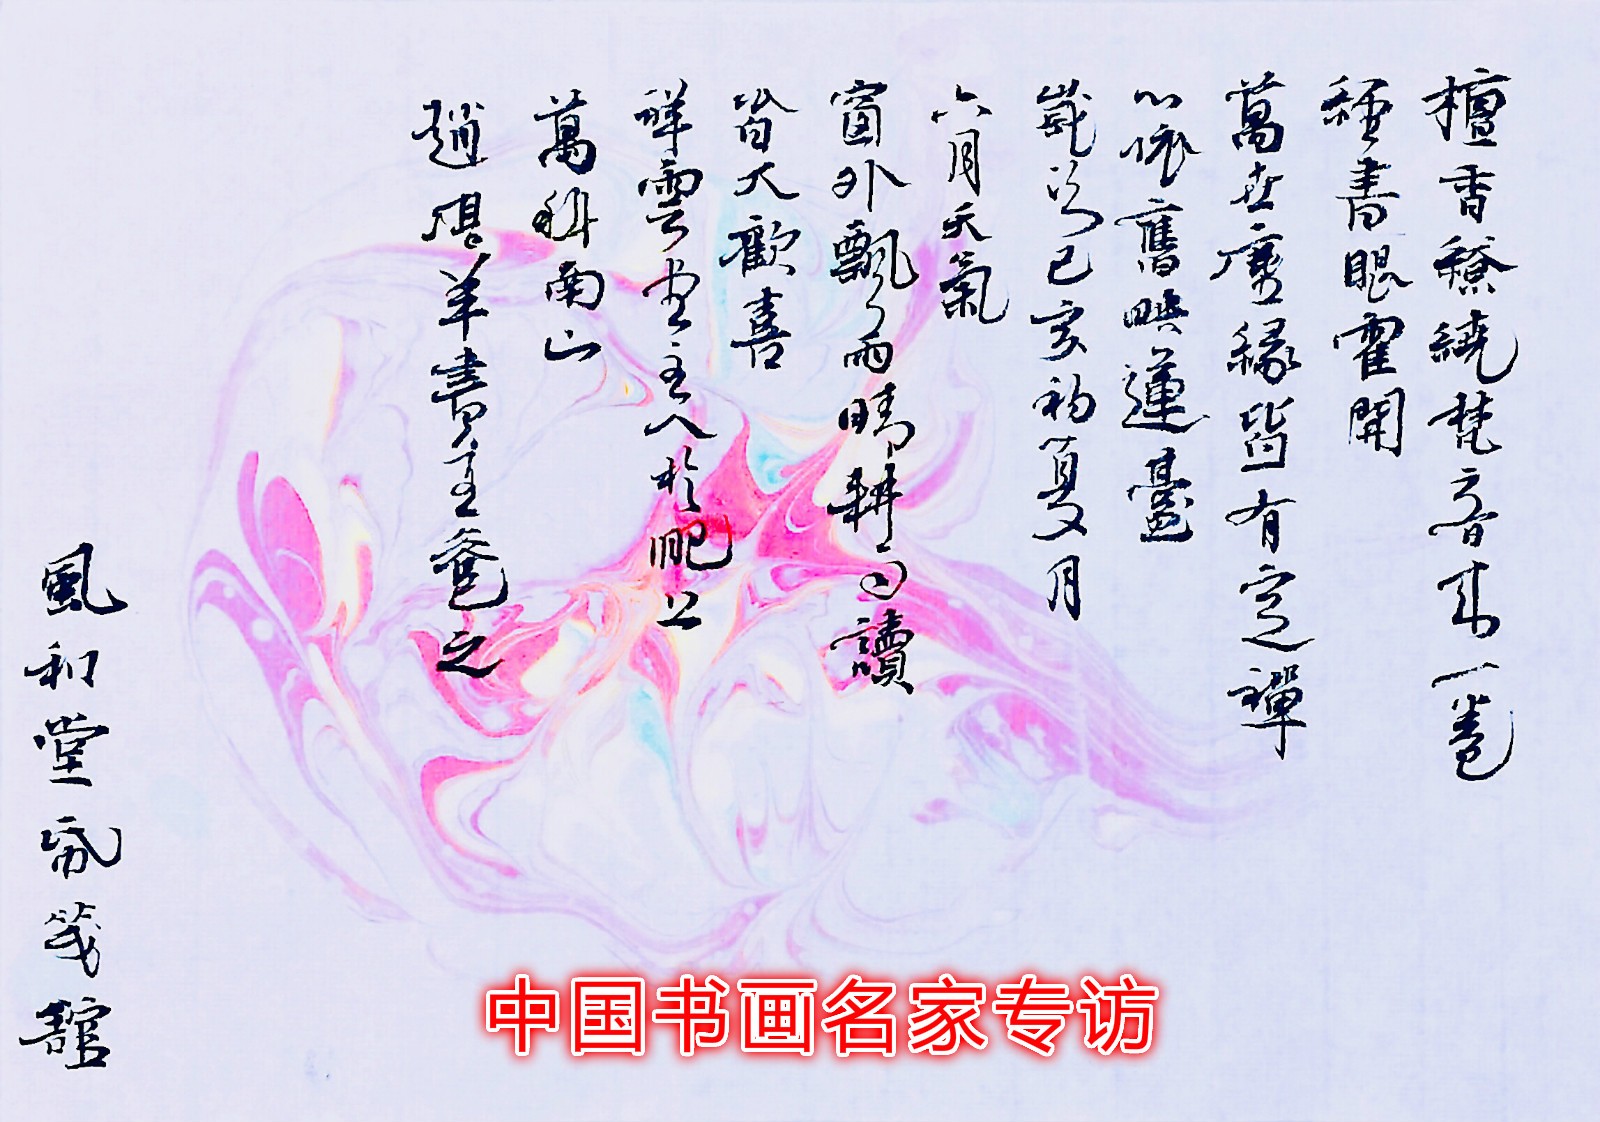 檀香繚繞梵音來一卷
種書眼霍開
萬丈塵緣皆有定禪
心依舊映蓮臺
歲次己亥初夏月
六月天氣
窗外飄雨晴耕雨讀
皆大歡喜
祥雲堂主人於肥上
萬科南山
趙 羊書主 之
風和堂 箋館
中国书画名家专访